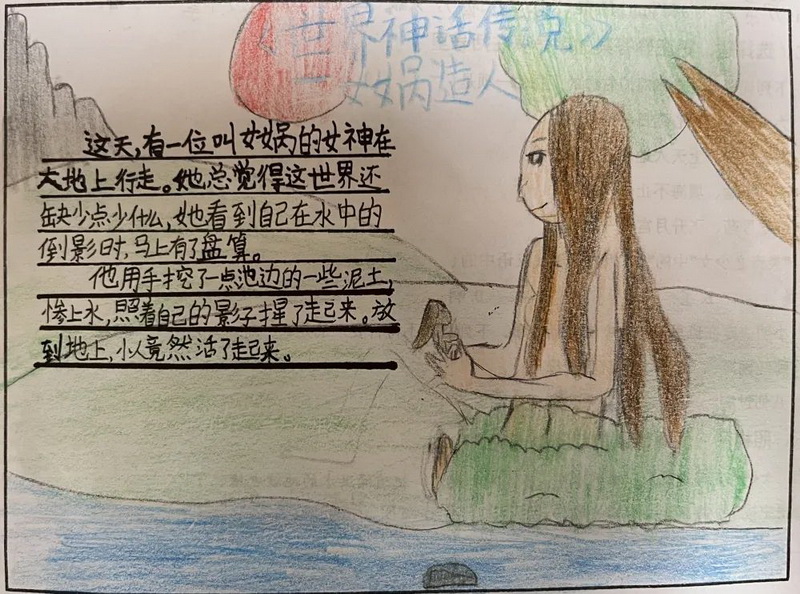 《世界神话传说》
一女娲造人
这天,有一位叫女娲的女神在
大地上行走。她总觉得这世界还
缺少点少什么,她看到自己在水中的
倒影时,马上有了盘算。
他用手挖了一点池边的一些泥土,
惨上水,照着自己的影子捏了起来。放
到地上,小人竟然活了起来。